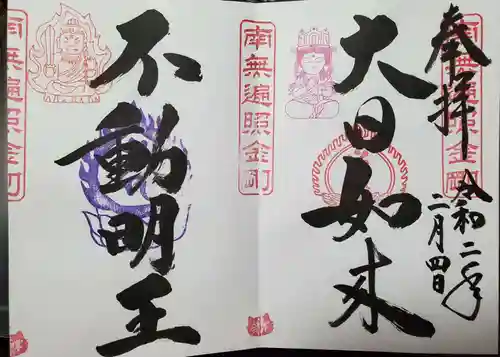 奉拝
令和二年
二月四日
大日如来
南無遍照金剛
南無遍照金剛
不動明王
南無遍照金剛